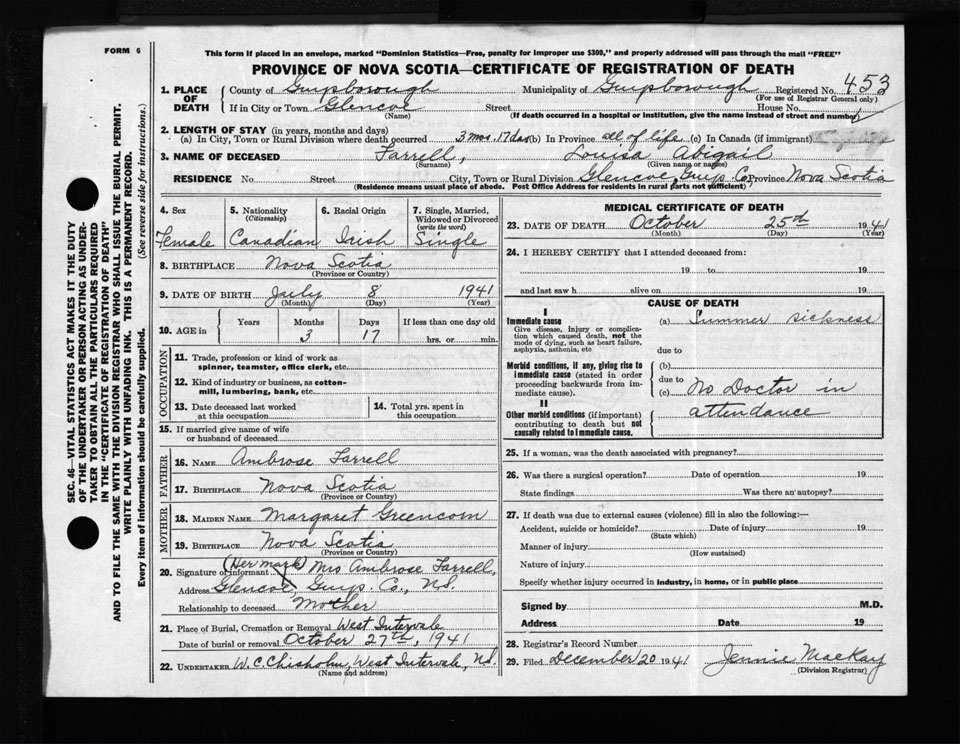 FORM 6
This form if placed in an envelope, marked "Dominion Statistics—Free, penalty for improper use $300," and properly addressed will pass through the mail "FREE"
PROVINCE OF NOVA SCOTIA—CERTIFICATE OF REGISTRATION OF DEATH
1. PLACE OF DEATH { County of Guysborough Municipality of Guysborough Registered No. 453
(For use of Registrar General only)
If in City or Town Glencoe Street House No.
(Name) (If death occurred in a hospital or institution, give the name instead of street and number)
2. LENGTH OF STAY (in years, months and days)
(a) In City, Town or Rural Division where death occurred 3 mos. 17 das (b) In Province all of life (c) In Canada (if immigrant)
3. NAME OF DECEASED Farrell, Louisa Abigail
(Surname) (Given name or names)
RESIDENCE No. Street City, Town or Rural Division Glencoe, Guys. Co. Province Nova Scotia
(Residence means usual place of abode. Post Office Address for residents in rural parts not sufficient)
4. Sex Female
5. Nationality (Citizenship) Canadian
6. Racial Origin Irish
7. Single, Married, Widowed or Divorced (write the word) Single
8. BIRTHPLACE Nova Scotia
(Province or Country)
9. DATE OF BIRTH July 8 1941
(Month) (Day) (Year)
10. AGE in Years Months 3 Days 17 If less than one day old hrs. or min.
OCCUPATION
11. Trade, profession or kind of work as spinner, teamster, office clerk, etc.
12. Kind of industry or business, as cotton-mill, lumbering, bank, etc.
13. Date deceased last worked at this occupation
14. Total yrs. spent in this occupation
15. If married give name of wife or husband of deceased
FATHER
16. NAME Ambrose Farrell
17. BIRTHPLACE Nova Scotia
(Province or Country)
MOTHER
18. MAIDEN NAME Margaret Greencorn
19. BIRTHPLACE Nova Scotia
(Province or Country)
20. Signature of Informant (Her mark) X Mrs Ambrose Farrell,
Address Glencoe, Guys. Co., N.S.
Relationship to deceased Mother
21. Place of Burial, Cremation or Removal West Intervale
Date of burial or removal October 27th, 1941
22. UNDERTAKER W. C. Chisholm, West Intervale, N.S.
(Name and address)
MEDICAL CERTIFICATE OF DEATH
23. DATE OF DEATH October 25th 1941
(Month) (Day) (Year)
24. I HEREBY CERTIFY that I attended deceased from:
19 to 19
and last saw h alive on 19
CAUSE OF DEATH
I
Immediate cause
Give disease, injury or complication which caused death, not the mode of dying, such as heart failure, asphyxia, asthenia, etc
(a) Summer sickness
due to
Morbid conditions, if any, giving rise to immediate cause (stated in order proceeding backwards from immediate cause).
(b)
due to
(c) No Doctor in attendance
II
Other morbid conditions (if important) contributing to death but not causally related to immediate cause.
25. If a woman, was the death associated with pregnancy?
26. Was there a surgical operation? Date of operation 19
State findings Was there an autopsy?
27. If death was due to external causes (violence) fill in also the following:—
Accident, suicide or homicide? Date of injury 19
(State which)
Manner of injury
(How sustained)
Nature of injury
Specify whether injury occurred in industry, in home, or in public place
Signed by M.D.
Address Date 19
28. Registrar's Record Number
29. Filed December 20 1941 Jennie MacKay
(Division Registrar)
SEC. 46—VITAL STATISTICS ACT MAKES IT THE DUTY
OF THE UNDERTAKER OR PERSON ACTING AS UNDER-
TAKER TO OBTAIN ALL THE PARTICULARS REQUIRED
IN THE "CERTIFICATE OF REGISTRATION OF DEATH"
AND TO FILE THE SAME WITH THE DIVISION REGISTRAR WHO SHALL ISSUE THE BURIAL PERMIT.
WRITE PLAINLY WITH UNFADING INK. THIS IS A PERMANENT RECORD.
Every item of information should be carefully supplied. (See reverse side for instructions.)